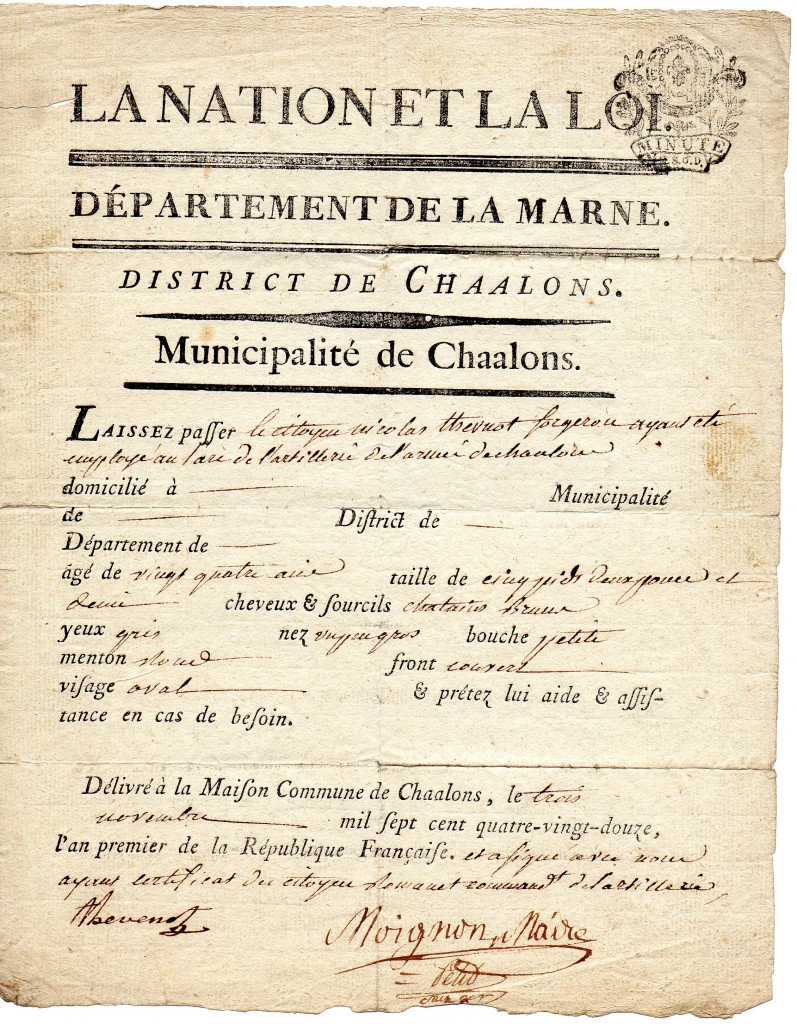 LA NATION ET LA LOI.
MINUTE
S. 6. D.
DÉPARTEMENT DE LA MARNE.
DISTRICT DE CHAALONS.
Municipalité de Chaalons.
LAISSEZ paſſer le citoyen nicolas thevnot forgeron ayant eté
employé au parc de l'artillerie de l'armée de chaalons
domicilié à Municipalité
de Diſtrict de
Département de
âgé de vingt quatre ans taille de cinq pieds deux pouce et
demi cheveux & ſourcils chatains Bruns
yeux gris nez moyen gros bouche petite
menton rond front couvert
viſage oval & prétez lui aide & aſſiſ-
tance en cas de beſoin.
Délivré à la Maiſon Commune de Chaalons, le trois
novembre mil ſept cent quatre-vingt-douze,
l'an premier de la République Françaiſe. et a signé avec nous
ayant certificat du citoyen commandt de l'artillerie
thevenot Moignon Maire
petit